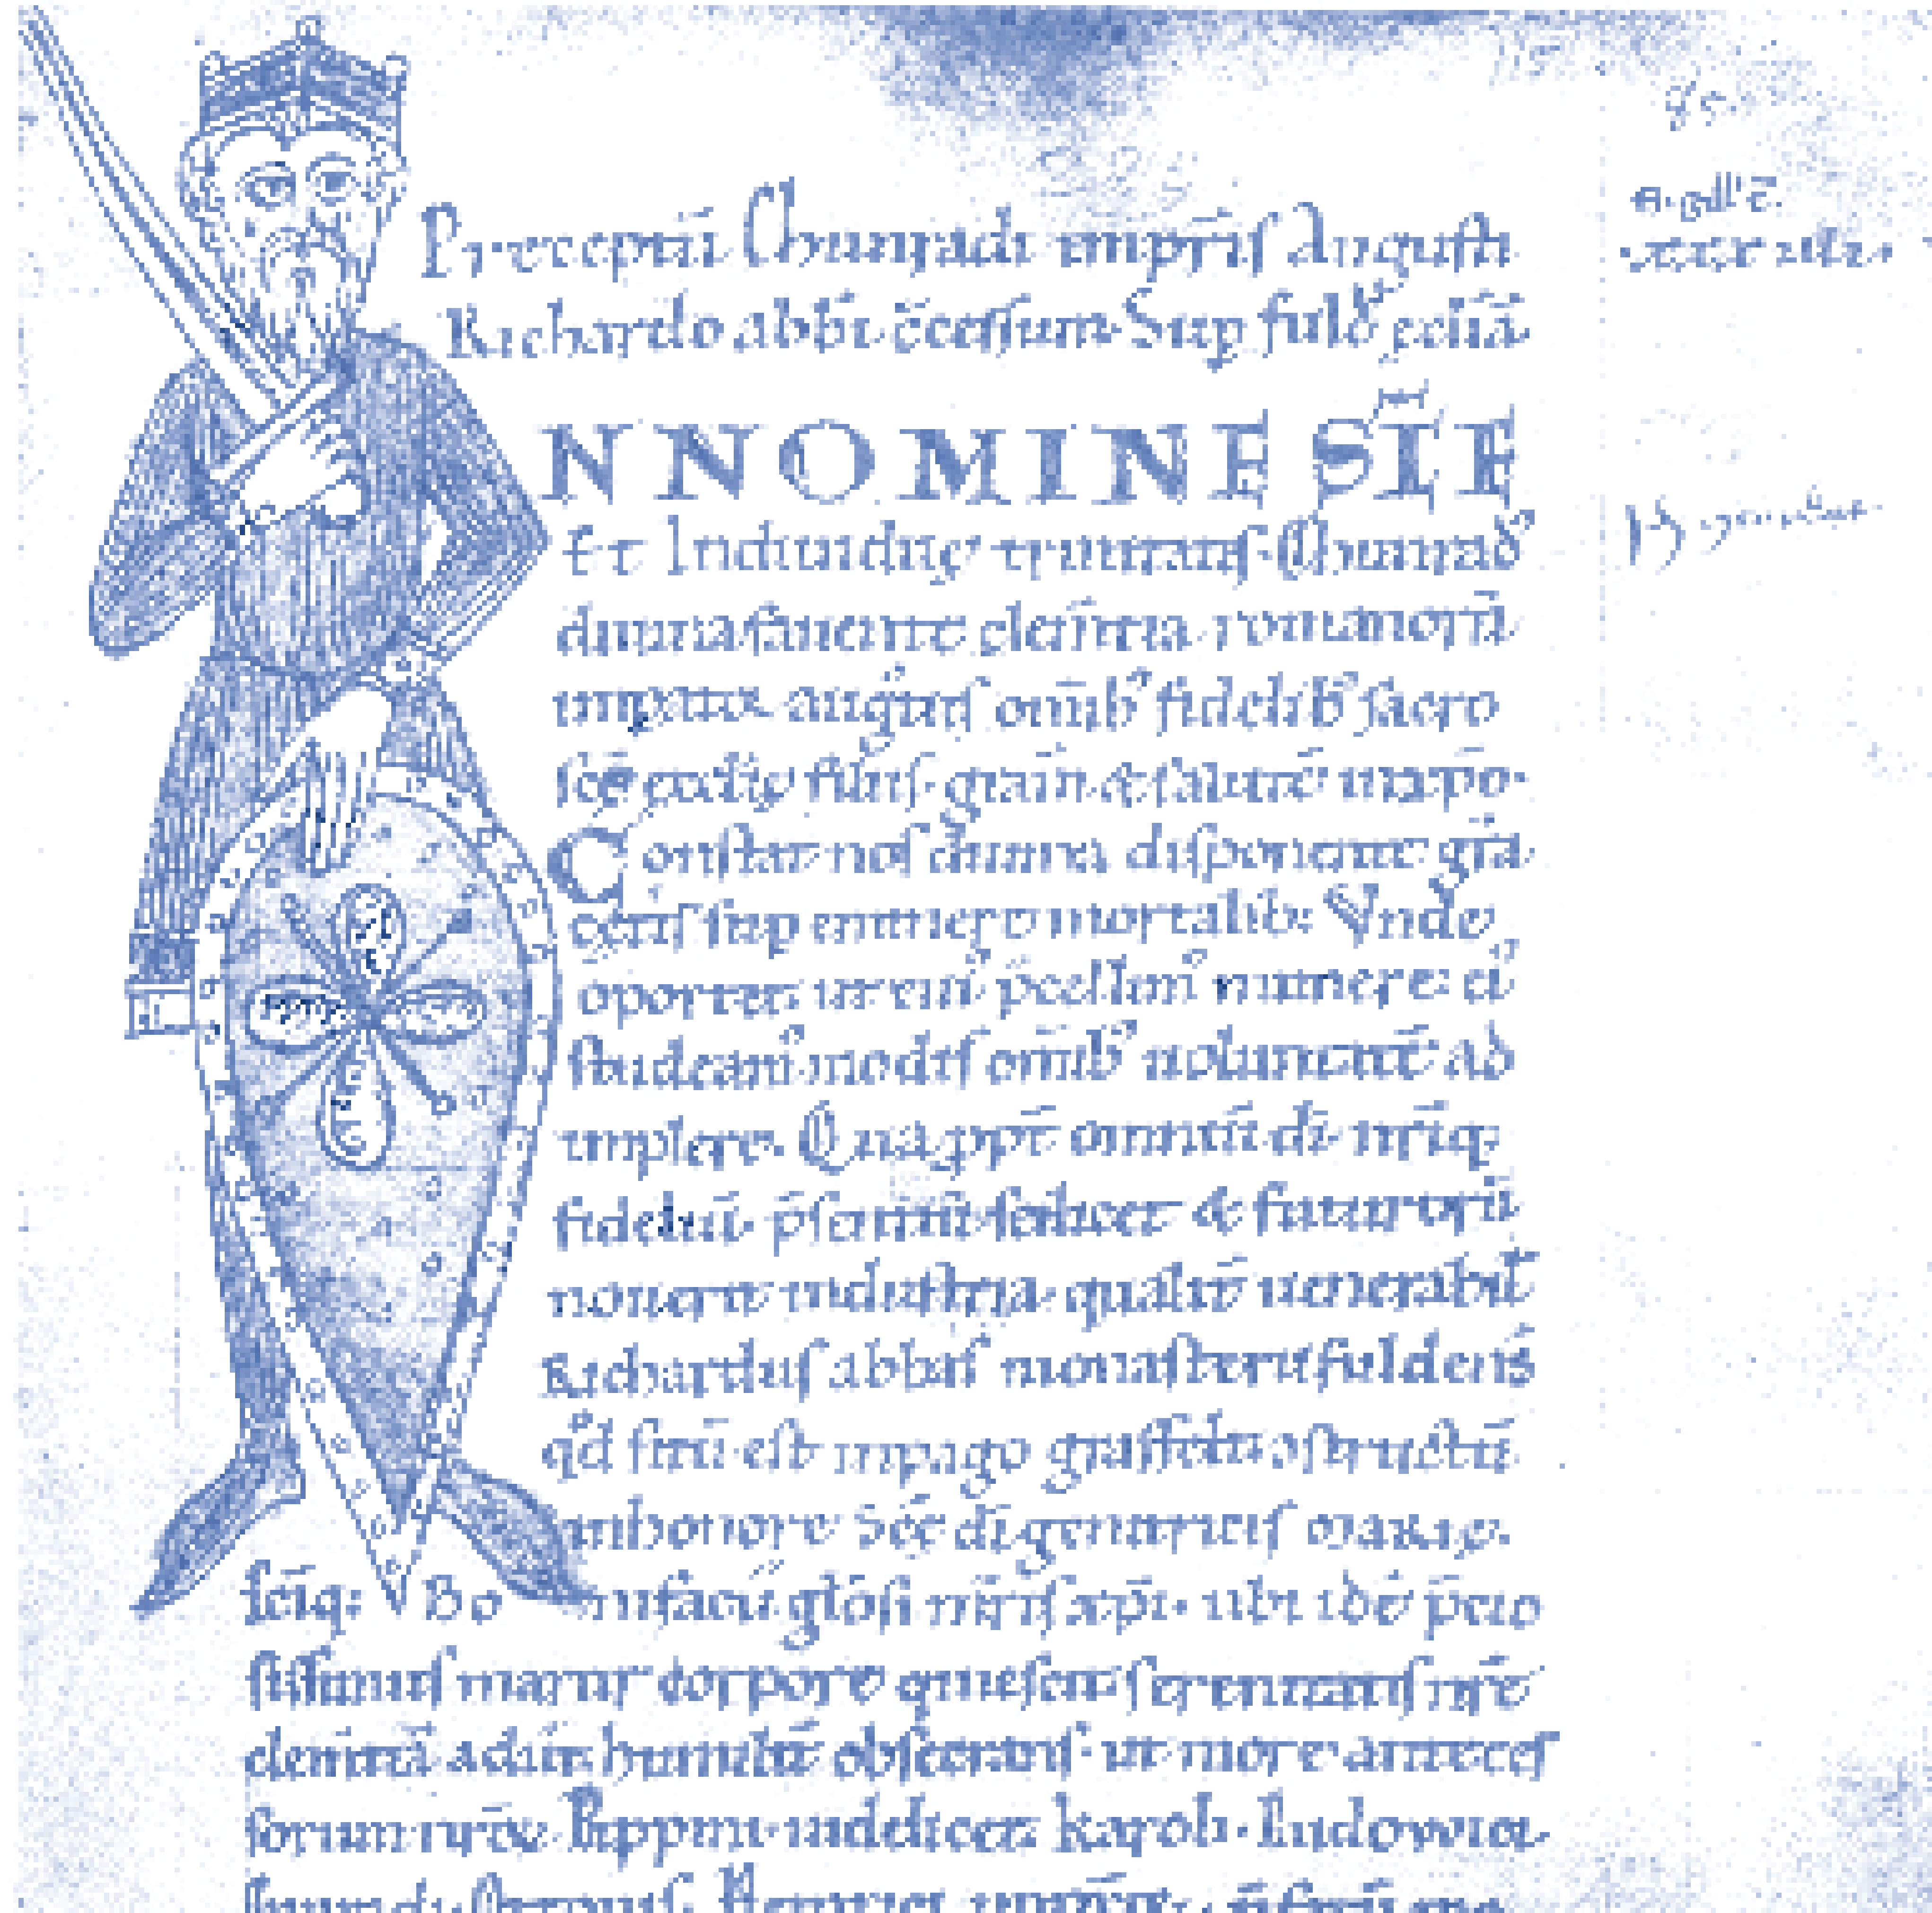 Preceptū Chunradi imp̄ris Augusti
Richardo abb̄i c̄cessum Sup fuld̄ eccl̄iā
N NOMINE SC̄E
Et Indiuiduę trinitatis Chunrad'
diuina fauente clem̄tia romanorū
augustus om̄ib' fidelib' sacro
sc̄ę filiis grām & salutē in xp̄o.
Constat nos diuina disponente grā
cęteris sup eminere mortalib; Vnde
oportet ut cui' p̄cellim' munere ei'
studeam' modis om̄ib' uoluntati ad
implere. Qua ppt̄ omniū di nr̄iq;
fideliū p̄sentiū scilicet & futurorū
nouerit industria qualit̄ uenerabil'
Richardus abbas monasterii fuldens̄
qd̄ sitū est in pago grasfelt ostructū
in honore Sc̄ę di genitricis MARIĘ.
sc̄iq; Bonifacii gl̄osi mr̄iris xp̄i. ubi idē p̄cio
sissimus martir corpore quiescit serenitatis nr̄ę
clem̄tiā adiit humilit̄ obsecrans. ut more anteces
sorum nr̄orū Pippini uidelicet karoli. ludowici